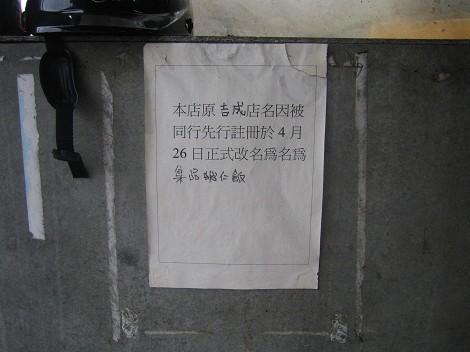 本店原吉成店名因被
同行先行註冊於4月
26日正式改名爲名爲
集品蝦仁飯